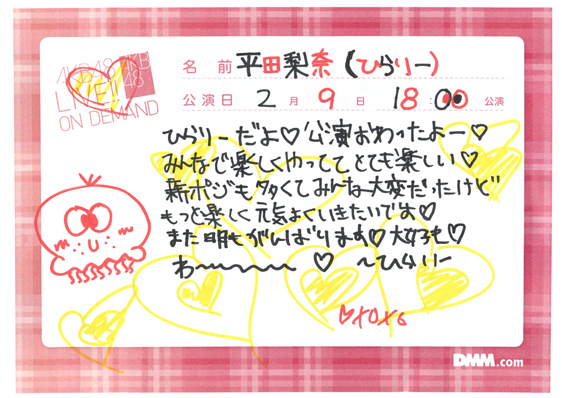 AKB48
LIVE!!
ON DEMAND
名前 平田梨奈(ひらりー)
公演日 2月9日 18:00公演
ひらりーだよ♡公演おわったよー♡
みんなで楽しくやっててとても楽しい♡
新ポジも多くてみんな大変だったけど
もっと楽しく元気よくいきたいです♡
また明日がんばります♡大好き♡
わ〜〜〜〜 ♡ 〜ひらりー
♡xoxo
DMM.com